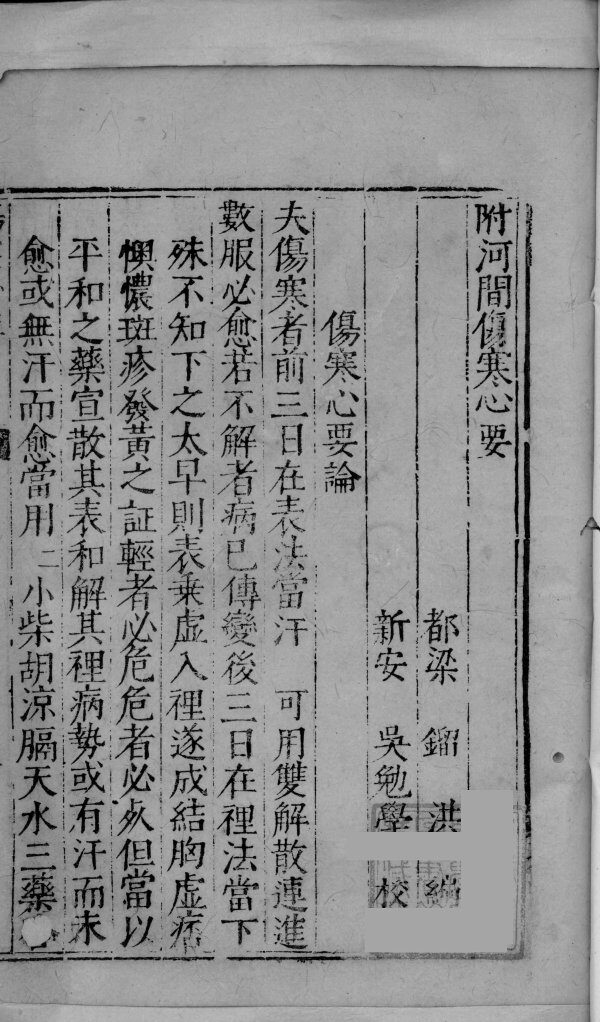 附河間傷寒心要
都梁 鎦 洪 編
新安 吳勉學 校
傷寒心要論
夫傷寒者前三日在表法當汗 可用雙解散連進
數服必愈若不解者病已傳變後三日在裡法當下
殊不知下之太早則表乗虛入裡遂成結胸虛痞
懊憹斑疹發黃之証輕者必危危者必死但當以
平和之藥宣散其表和解其裡病勢或有汗而未
愈或無汗而愈當用 二 小柴胡涼膈天水三藥